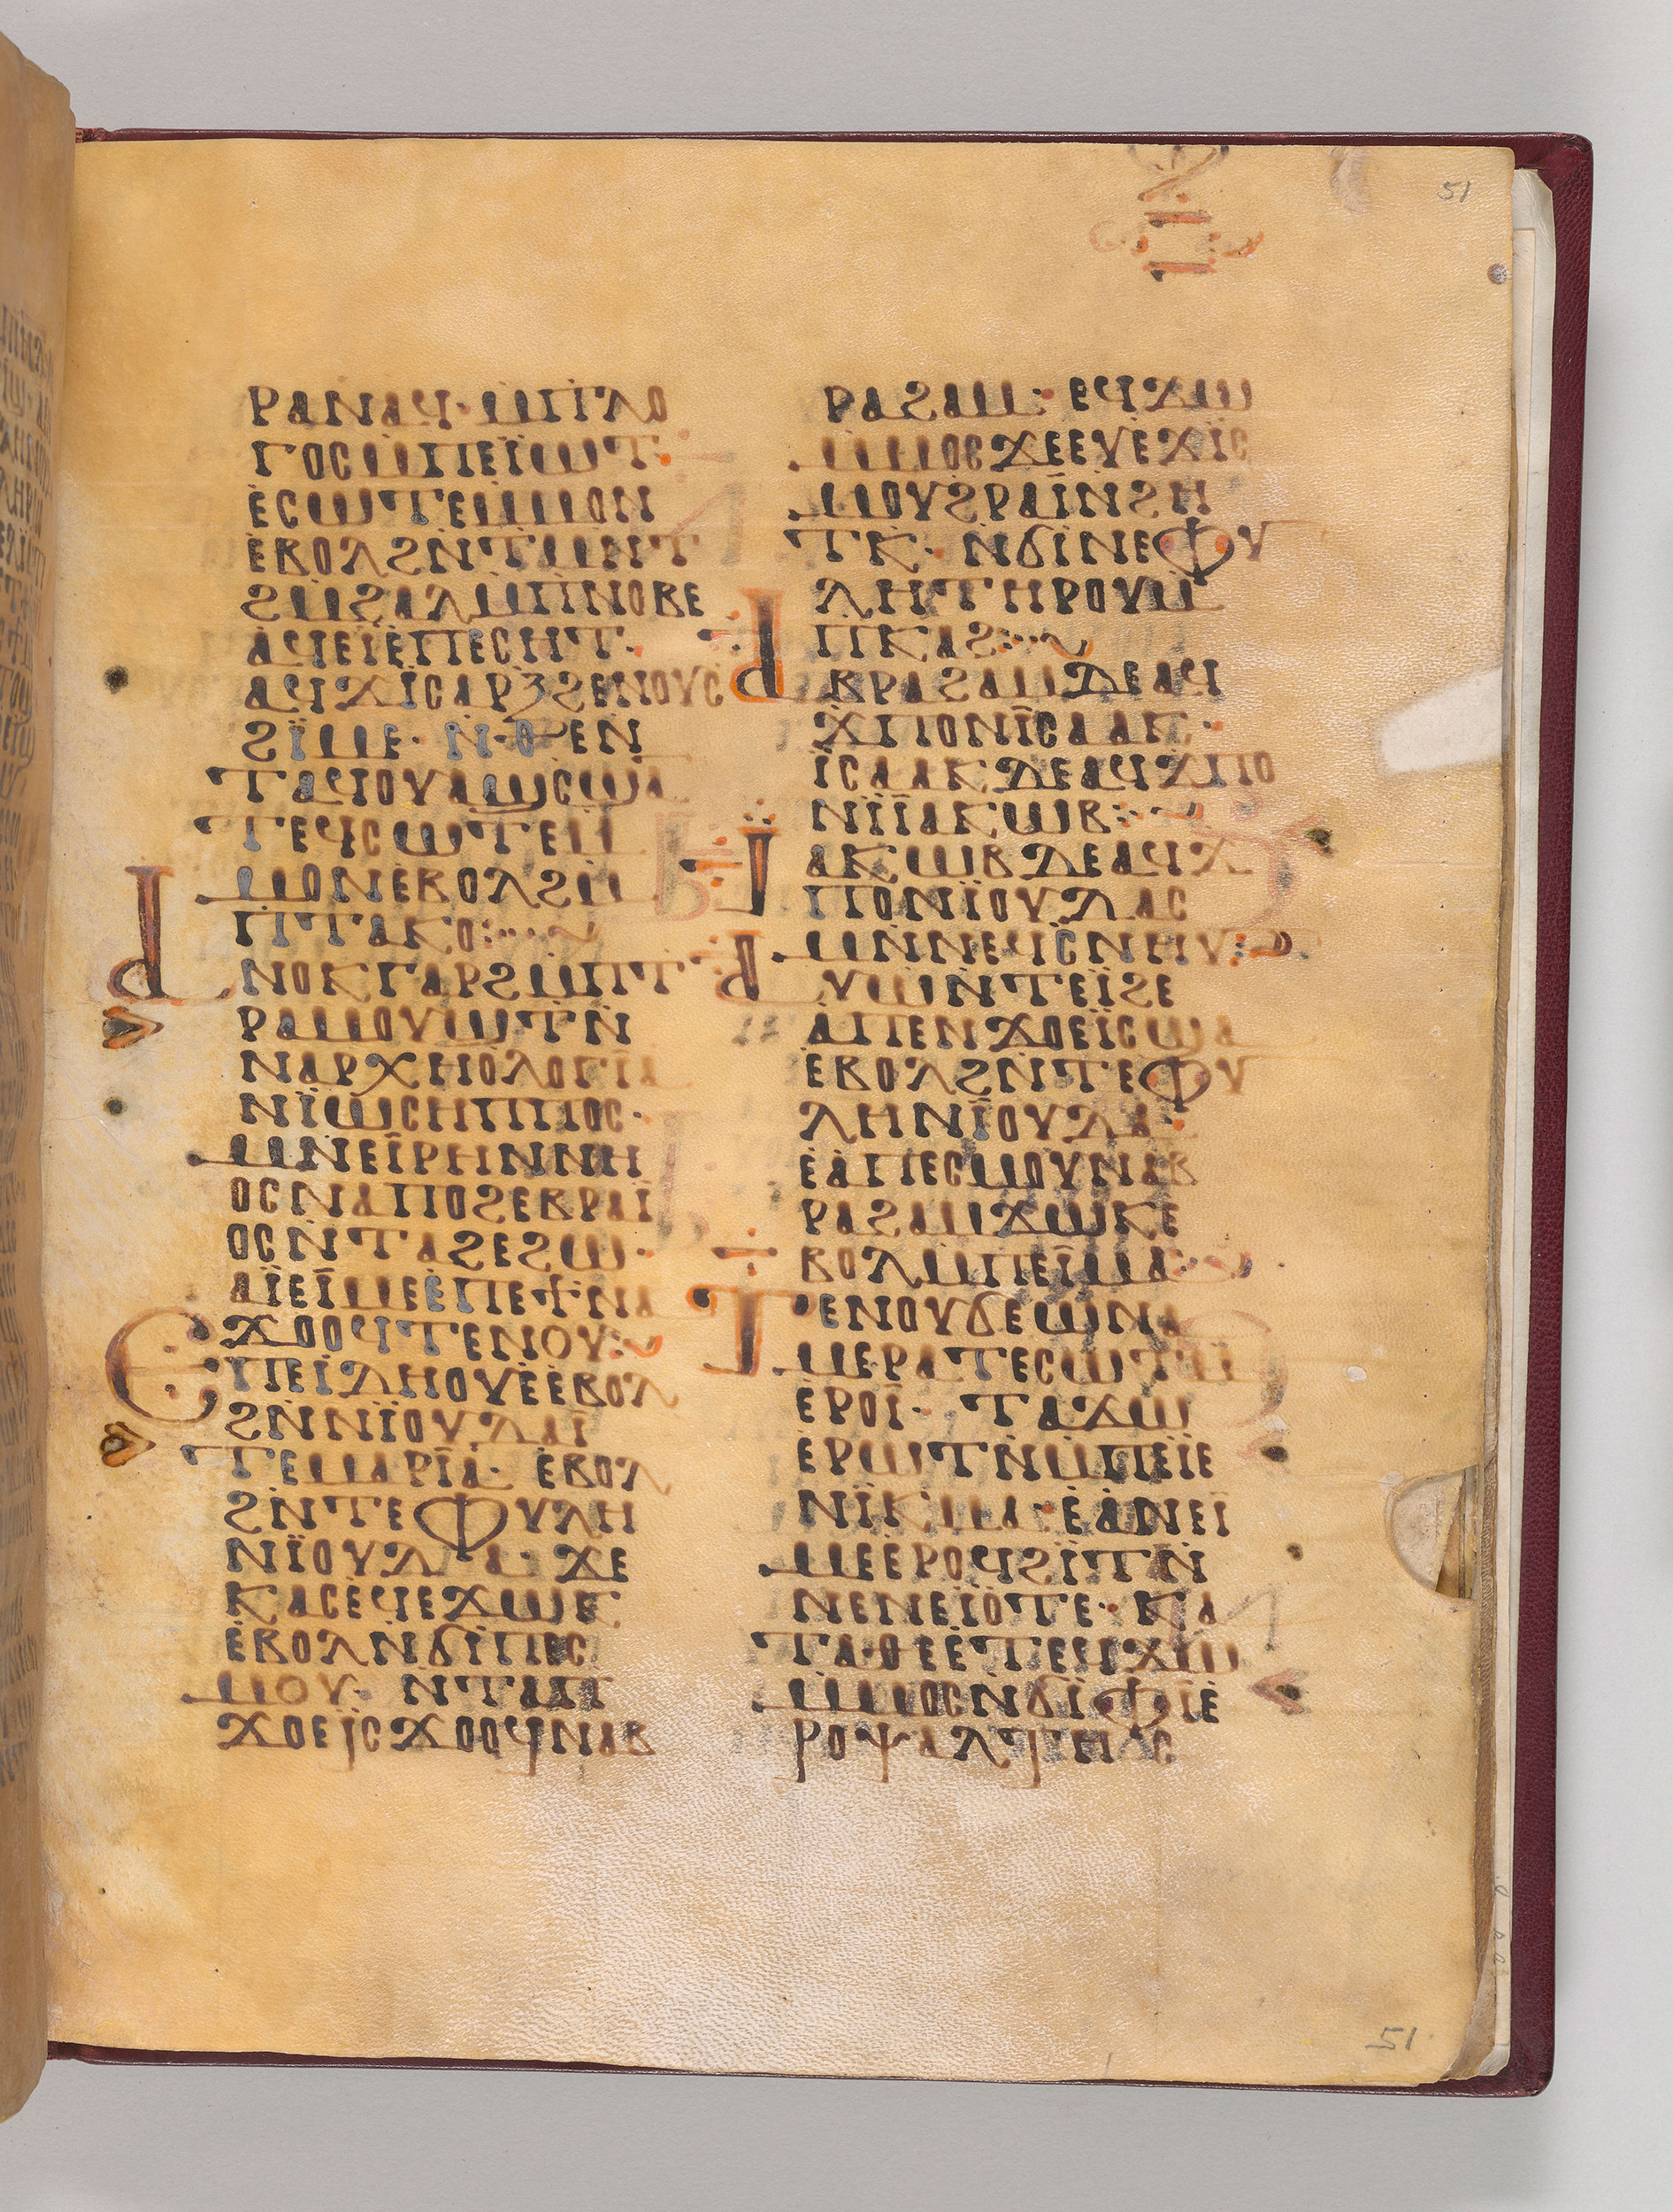 51
ⲣⲁⲛⲁϥ· ⲙ̇ⲡⲗⲟ
ⲅⲟⲥⲙ̇ⲡⲉⲓ̈ⲱⲧ·
ⲉ̇ⲥⲱⲧⲉⲙ̇ⲙⲟⲛ
ⲉ̇ⲃⲟⲗϩⲛ̇ⲧⲙⲛⲧ
ϩⲙ̇ϩⲁⲗⲙ̇ⲡⲛⲟⲃⲉ
ⲁϥⲉⲓ̈ⲉ̇ⲡⲉⲥⲏⲧ·
ⲁϥϫⲓⲥⲁⲣⲝϩⲉⲛⲟⲩⲥ
ϩⲓ̈ⲙⲉ· ⲛ·ⲑⲉⲛ
ⲧⲁϥⲟⲩⲁϣⲥϣⲁ
ⲧⲉϥⲥⲱⲧⲉⲙ̇
ⲙⲟⲛⲉ̇ⲃⲟⲗϩⲙ̇
ⲡⲧⲁⲕⲟ:
ⲁⲛⲟⲕⲅⲁⲣϩⲙ̇ⲡⲧ
ⲣⲁⲙⲟⲩϣⲧⲛ̇
ⲛⲁⲣⲭⲏⲟ̇ⲗⲟⲅⲓ̈ⲁ
ⲛⲓ̈ⲱⲥⲏⲡⲡⲟⲥ·
ⲙⲛⲉⲓ̈ⲣⲏⲛⲛⲏ
ⲟⲥⲛⲁⲡⲟϩⲉⲃⲣⲁⲓ̈
ⲟⲥⲛ̇ⲧⲁϩⲉϩⲱ·
ⲁⲓ̈ⲉⲓ̈ⲙⲉⲉ̇ⲡⲉϯⲛⲁ
ϫⲟⲟϥⲧⲉⲛⲟⲩ:
ⲉⲡⲉⲓ̈ⲇⲏⲟⲩⲉ̇ⲉ̇ⲃⲟⲗ
ϩⲛ̇ⲛⲓ̈ⲟⲩⲇⲁⲓ̈
ⲧⲉⲙⲁⲣⲓ̈ⲁ· ⲉ̇ⲃⲟⲗ
ϩⲛ̇ⲧⲉⲫⲩⲗⲏ
ⲛⲓ̈ⲟⲩⲇⲁ· ϫⲉ
ⲕⲁⲥⲉ̇ϥⲉϫⲱⲕ
ⲉ̇ⲃⲟⲗⲛ̇ϭⲓⲡⲉⲥ
ⲙⲟⲩ· ⲛ̇ⲧⲁⲡ
ϫⲟⲉⲓⲥϫⲟⲟϥⲛⲁⲃ
ⲣⲁϩⲁⲙ· ⲉϥϫⲱ
ⲙ̇ⲙⲟⲥϫⲉⲉⲩⲉϫⲓ̈ⲥ
ⲙⲟⲩϩⲣⲁⲓ̈ⲛ̇ϩⲏ
ⲧⲕ· ⲛ̇ϭⲓⲛⲉⲫⲩ
ⲗⲏⲧⲏⲣⲟⲩⲙ̇
ⲡⲕⲁϩ:
ⲁⲃⲣⲁϩⲁⲙⲇⲉⲁϥ
ϫⲡⲟⲛⲓ̈ⲥⲁⲁⲕ·
ⲓ̈ⲥⲁⲁⲕⲇⲉⲁϥϫⲡⲟ
ⲛⲓ̈ⲓ̈ⲁⲕⲱⲃ:
ⲓ̈ⲁⲕⲱⲃⲇⲉⲁϥϫ
ⲡⲟⲛⲓ̈ⲟⲩⲇⲁⲥ
ⲙⲛ̇ⲛⲉϥⲥⲛⲏⲩ:
ⲁⲩⲱⲛ̇ⲧⲉⲓ̈ϩⲉ
ⲁⲡⲉⲛϫⲟⲉⲓ̈ⲥϣⲁ
ⲉ̇ⲃⲟⲗϩⲛ̇ⲧⲉⲫⲩ
ⲗⲏⲛⲓ̈ⲟⲩⲇⲁ·
ⲉ̇ⲁⲡⲉⲥⲙⲟⲩⲛⲁⲃ
ⲣⲁϩⲁⲙϫⲱⲕⲉ̇
ⲃⲟⲗⲙ̇ⲡⲉⲓ̈ⲙⲁ:
ⲧⲉⲛⲟⲩϭⲉⲱⲛⲁ
ⲙⲉⲣⲁⲧⲉⲥⲱⲧⲙ̇
ⲉ̇ⲣⲟⲓ̈· ⲧⲁϫⲱ
ⲉ̇ⲣⲱⲧⲛ̇ⲙ̇ⲡⲉⲓ̈ⲉ
ⲛⲓ̈ⲕⲙⲁ·ⲉ̇ⲁ̇ⲛⲉⲓ̈
ⲙⲉⲉ̇ⲣⲟϥϩⲓ̈ⲧⲛ̇
ⲛⲉⲛⲉⲓ̈ⲟ̇ⲧⲉ· ⲕⲁ
ⲧⲁⲑⲉⲉ̇ⲧⲉϥϫⲱ
ⲙ̇ⲙⲟⲥⲛ̇ϭⲓⲫⲓ̈ⲉ̇
ⲣⲟⲯⲁⲗⲧⲏⲥ
51